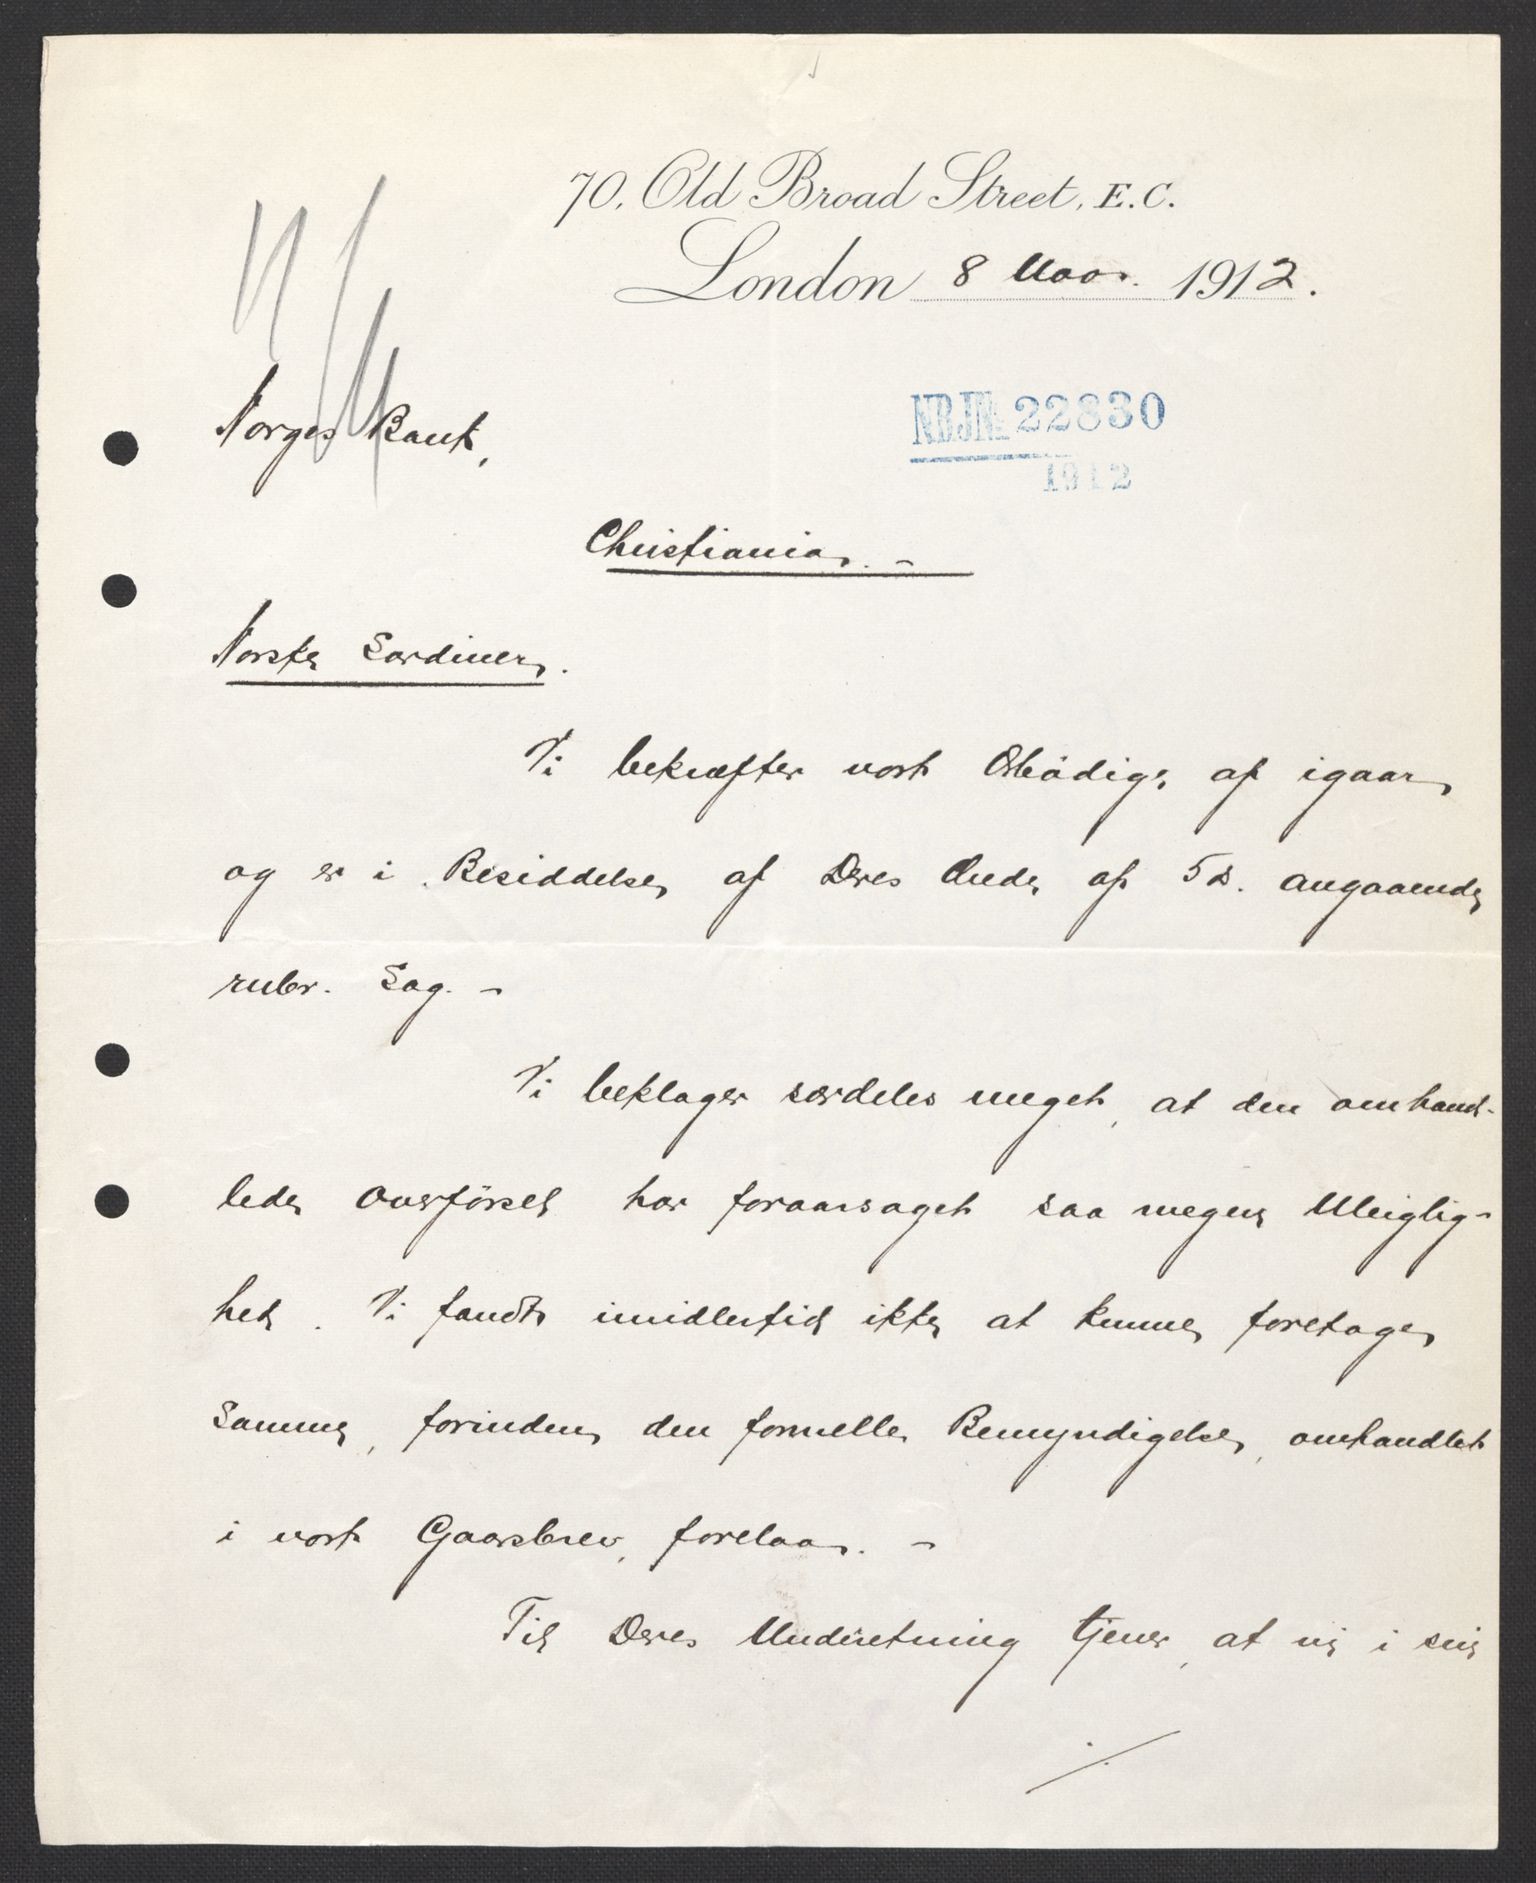 70, Old Broad Street, E.C.
London 8 Nov. 1912.
N.B.J.No 22830
1912
Norges Bank,
Christiania. -
Norske Sardiner.
Vi bekræfter vort Ærbødige af igaar
og er i Besiddelse af Deres Ærede af 5 ds. angaaende
rubr. Sag. -
Vi beklager særdeles meget, at den omhand-
lede Overførsel har foraarsaget saa megen Uleilig-
het. Vi fandt imidlertid ikke at kunne foretage
samme, forinden den formelle Bemyndigelse, omhandlet
i vort Gaarsbrev, forelaa. -
Til Deres Underretning tjener, at vi i sin
./.